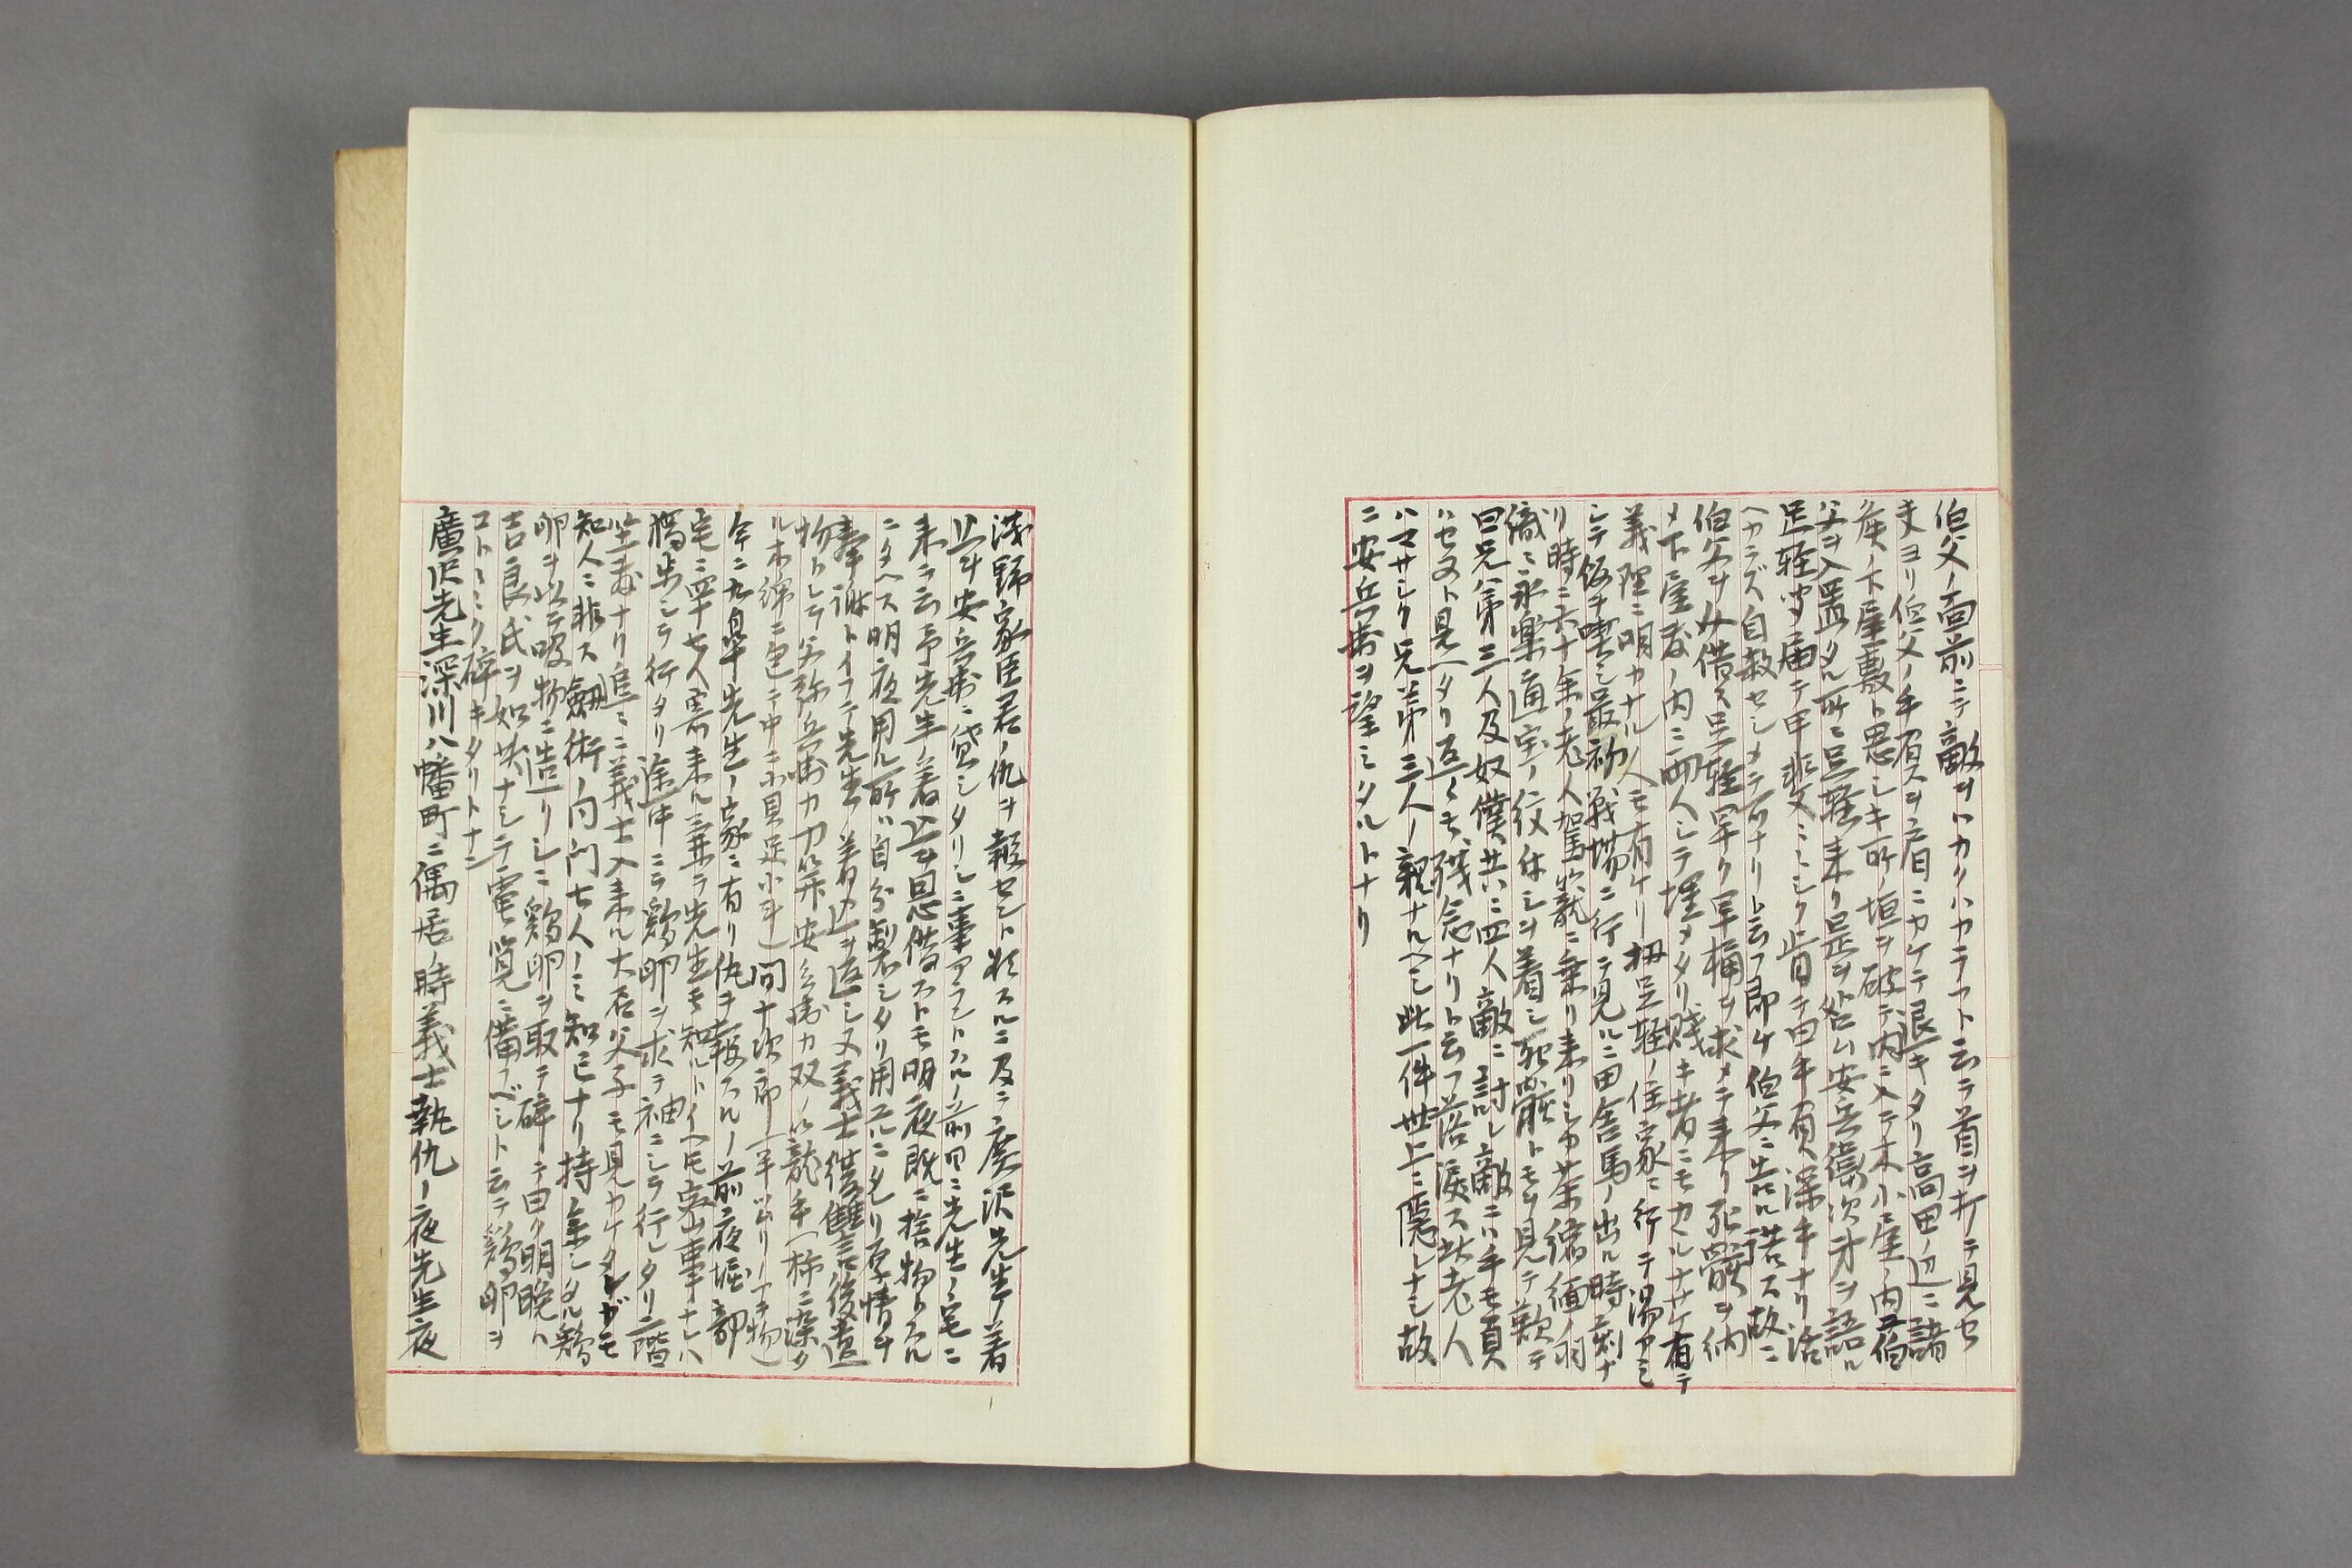 伯父ノ面前ニテ敵ヲトカクハカラフト云テ首ヲ打テ見セ
夫ヨリ伯父ノ手負ヲ肩ニカケテ退キタリ高田ノ辺ニ諸
侯ノ下屋敷ト思シキ所ノ垣ヲ破テ内ニ入テ木小屋ノ内ヱ伯
父ヲ入置タル所ニ足軽来リ是ヲ咎ム安兵衛次才ヲ語ル
足軽聞届テ甲斐ミシク肯テ曰手負深手ナリ活
ヘカラズ自殺セシメテ可ナリト云フ即ケ伯父ニ告ル諾ス故ニ
伯父ヲ介借ス足軽早ク早桶ヲ求メテ来リ死骸ヲ納
メ下屋敷ノ内ニ両人シテ埋メタリ賎キ者ニモカルナサケ有テ
義理ニ明カナル人モ有ケリ扨足軽ノ住家ニ行テ湯アミ
シテ飯ヲ喫シ最初戦場ニ行テ見ルニ田舎馬ノ出ル時刻ナ
リ時ニ六十余ノ老人駕籠ニ乗リ来リシカ茶縮緬ノ羽
織ニ永楽通宝ノ紋付シヲ着シ死骸トモヲ見テ歎テ
曰兄弟三人及奴僕共ニ四人敵ニ討レ敵ニハ手モ負
ハセヌト見ヘタリ返くモ残念ナリト云フ落涙ス此老人
ハマサシク兄弟三人ノ親ナルヘシ此一件世上ニ隠レナシ故
ニ安兵衛ヲ望ミタルトナリ
浅野家臣君ノ仇ヲ報セント状スルニ及テ廣沢先生ノ着
込ヲ安兵衛ニ貸シタリシニ事アラントスルノ前日ニ先生ノ宅ニ
来テ云予先生ノ着込ヲ恩借ストモ明夜既ニ捨物トスル
ニタヘス明夜用ル所ハ自分製シタリ用ユルニタレリ厚情ヲ
奉謝トイフテ先生ノ着込ヲ返シ又義士復讐言後遺
物トシテ父弥兵衛カ刀箕安兵衛カ双ノ籠手(柿ニ染タ
ル木綿ニ包テ中ニ小具足小斗)間十次郎(羊ツリリアキ物)
今ニ九皐先生ノ家ニ有リ仇ヲ報スルノ前夜堀部
宅ニ四十七人寄来ル兼テ先生モ知ルトイヘ𪜈密事ナレハ
獨歩シテ行タリ途中ニテ鶏卵ヲ求テ袖ニシテ行レタリ二階
坐敷ナリ追ミニ義士入来ル大石父子モ見カケタレガモ
知人ニ非ス劔術ノ同門七人ノミ知己ナリ持参シタル鶏
卵ヲ以テ吸物ニ造リシニ鶏卵ヲ取テ碎テ曰ク明晩ハ
吉良氏ヲ如此ナシテ電覧ニ備フベシト云テ鶏卵ヲ
コトミク碎キタリトナン
廣沢先生深川八幡町ニ偶居ノ時義士執仇ノ夜先生夜